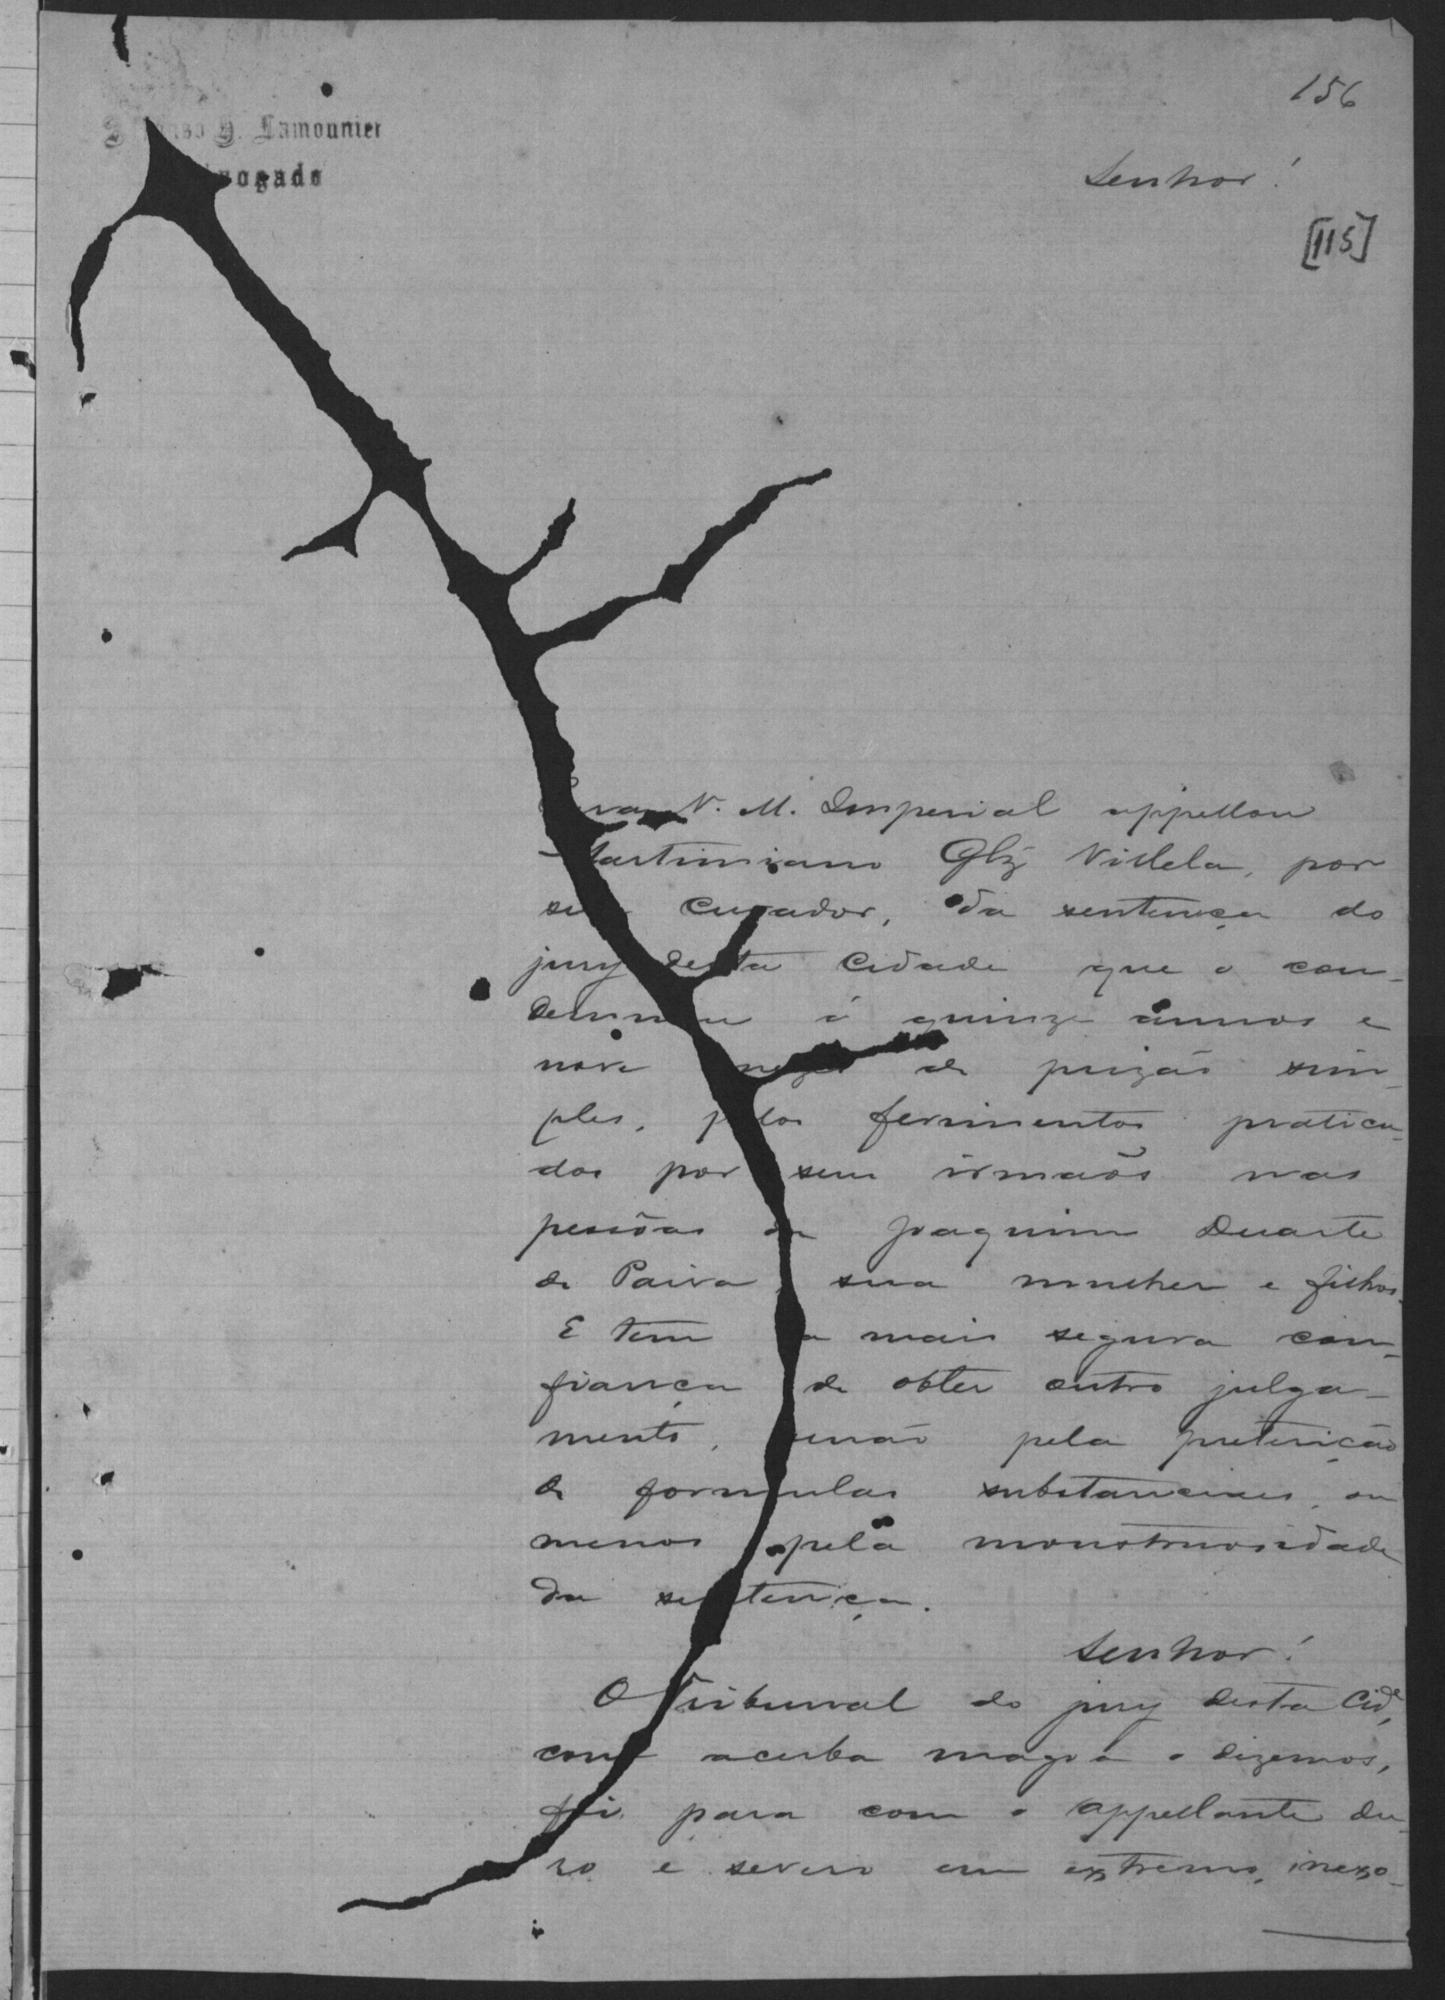 156
Lamounier
Senhor!
[115]
V. M. Imperial appellou
Martiniano Glz Villela, por
seu curador, da sentença do
jury desta Cidade que o con-
demnou á quinze annos e
nove mezes de prizão sim-
ples, pelos ferimentos pratica-
dos por seus irmãos nas
pessôas de Joaquim Duarte
de Paiva, sua mulher e filhos.
E tem a mais segura con-
fiança de obter outro julga-
mento, senão pela preterição
de formulas substanciaes, ou
menos pela monstruosidade
da sentença.
Senhor!
O Tribunal do jury desta Cide,
com acerba magoa o dizemos,
foi para com o appellante du-
ro e severo em extremo, inexo-